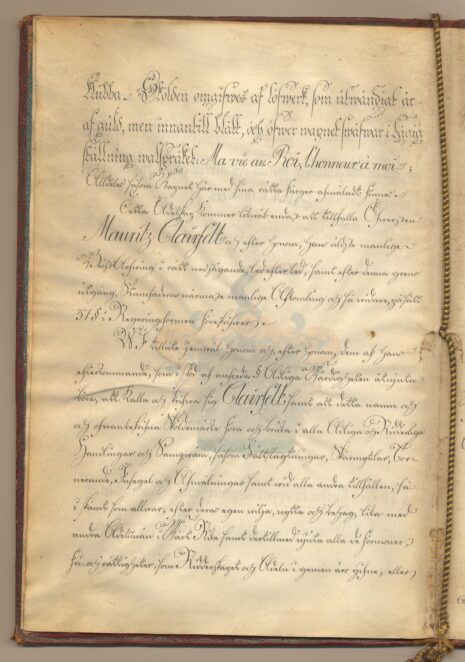 klubba. Skölden omgifwes af löfwerk, som utwändigt är
af guld, men innantill blått, och öfwer wapnet swäfwar i bågig
ställning walspråket: Ma vie au Roi, l'honneur à moi;
Alldeles såsom Wapnet här med sina rätta färger afmåladt finnes.
Detta Adelskap kommer likwäl endast att tillfalla Öfwersten
Mauritz Clairfelt och efter honom, hans äldste manlige
Bröst-Arfwinge i rätt nedstigande led efter led, samt efter denna grens
utgång, Stamfadrens närmaste manlige Afkomling och så widare, såsom
37 § i Regeringsformen föreskrifwer.
Wi tillåte jemväl honom och, efter honom, dem af hans
efterkommande, som i stöd af anförda § Adliga Wärdigheten åtnjuta
böra, att kalla och skrifwa sig Clairfelt, samt att detta namn och
och ofwanbeskrifna Sköldemärke föra och bruka i alla Adliga och Ridderliga
Handlingar och Samqwäm, såsom Fältslagtningar, Stormningar, Tor-
nerande, Insegel och Afmålningar samt wid alla andra tillfällen, så
i skämt som allwar, efter deras egen wilja, nytta och behag, lika med
andra Adelsmän i Wårt Rike samt dertill med njuta alla de förmoner,
fri- och rättigheter, som Ridderskapet och Adeln i gemen äro gifne, eller